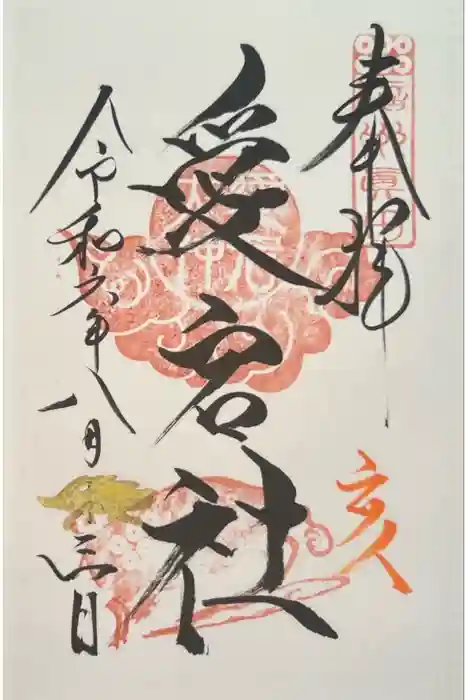 奉拝
愛宕社
亥
令和六年八月
十三日